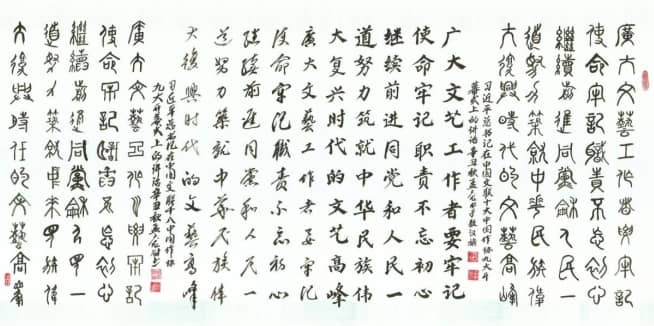 廣大文藝工作者要牢記
使命牢記職責不忘初心
繼續前進同黨和人民一
道努力築就中華民族偉
大復興時代的文藝高峰
习近平总书记在中国文联十大中国作协九大开
幕式上的讲话辛丑秋孟
广大文艺工作者要牢记
使命牢记职责不忘初心
继续前进同党和人民一
道努力筑就中华民族伟
大复兴时代的文艺高峰
廣大文藝工作者要牢記
使命牢记職責不忘初心
继续前進同黨和人民一
道努力築就中華民族偉
大復興時代的文藝高峰
习近平总书记在中国文联十大中国作协
九大开幕式上的讲话辛丑秋孟
廣大文藝工作者要牢記
使命牢記職責不忘初心
繼續前進同黨和人民一
道努力築就中華民族偉
大復興時代的文藝高峰